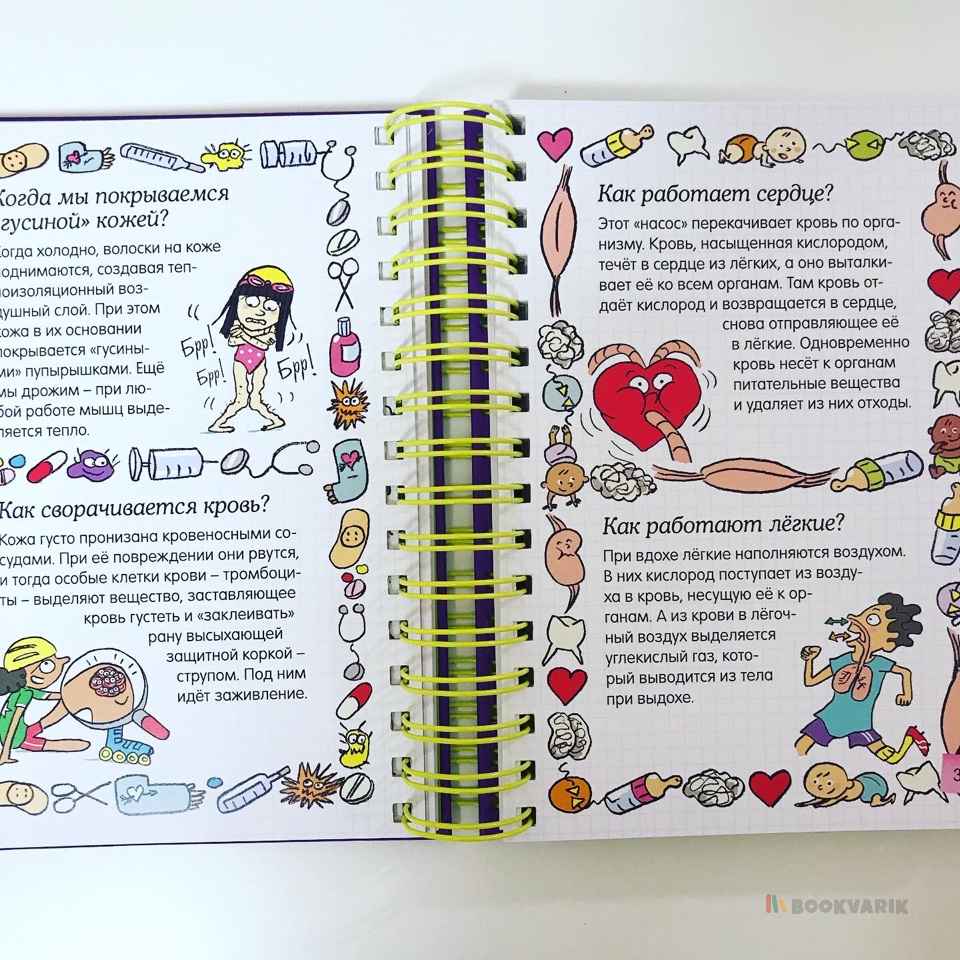 Когда мы покрываемся
«гусиной» кожей?
Когда холодно, волоски на коже
поднимаются, создавая теп-
лоизоляционный воз-
душный слой. При этом
кожа в их основании
покрывается «гусины-
ми» пупырышками. Ещё
мы дрожим – при лю-
бой работе мышц выде-
ляется тепло.
Брр!
Брр!
Брр!
Как сворачивается кровь?
Кожа густо пронизана кровеносными со-
судами. При её повреждении они рвутся,
и тогда особые клетки крови – тромбоци-
ты – выделяют вещество, заставляющее
кровь густеть и «заклеивать»
рану высыхающей
защитной коркой –
струпом. Под ним
идёт заживление.
Как работает сердце?
Этот «насос» перекачивает кровь по орга-
низму. Кровь, насыщенная кислородом,
течёт в сердце из лёгких, а оно выталки-
вает её ко всем органам. Там кровь от-
даёт кислород и возвращается в сердце,
снова отправляющее её
в лёгкие. Одновременно
кровь несёт к органам
питательные вещества
и удаляет из них отходы.
Как работают лёгкие?
При вдохе лёгкие наполняются воздухом.
В них кислород поступает из возду-
ха в кровь, несущую её к ор-
ганам. А из крови в лёгоч-
ный воздух выделяется
углекислый газ, кото-
рый выводится из тела
при выдохе.
3
BOOKVARIK